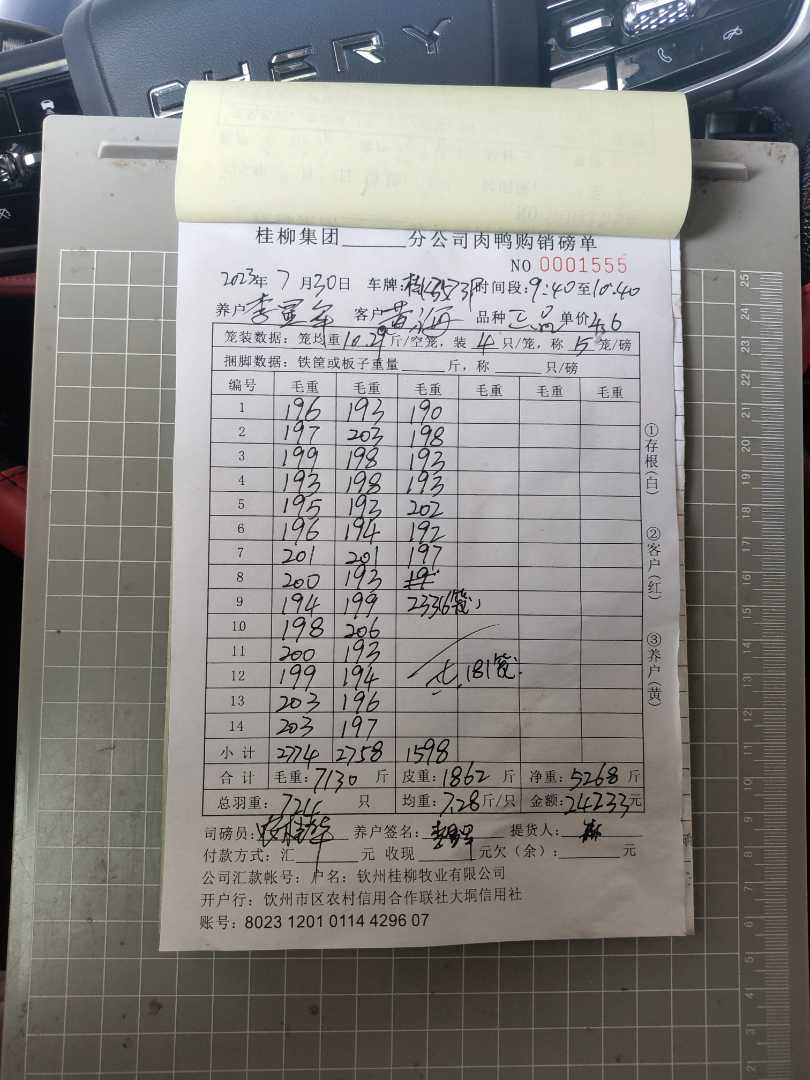 CHERY
桂柳集团______分公司肉鸭购销磅单
NO 0001555
2023年 7 月30日 车牌: 时间段:9:40至10:40
养户 客户 品种 正品 单价4.6
笼装数据: 笼均重10.29斤/空笼, 装 4 只/笼, 称 5 笼/磅
捆脚数据: 铁筐或板子重量______斤, 称______只/磅
编号 毛重 毛重 毛重 毛重 毛重 毛重
1 196 193 190
2 197 203 198
3 199 198 193
4 193 198 193
5 195 193 202
6 196 194 192
7 201 201 197
8 200 193
9 194 199 233/6笼
10 198 206
11 200 193
12 199 194 181笼
13 203 196
14 203 197
小计 2774 2758 1598
合计 毛重:7130 斤 皮重:1862 斤 净重:5268 斤
总羽重: 724 只 均重:7.28斤/只 金额:24233元
司磅员: 养户签名: 提货人:
付款方式: 汇______元 收现______元欠(余):______元
公司汇款帐号: 户名: 钦州桂柳牧业有限公司
开户行: 饮州市区农村信用合作联社大垌信用社
账号: 8023 1201 0114 4296 07
①存根(白)
②客户(红)
③养户(黄)